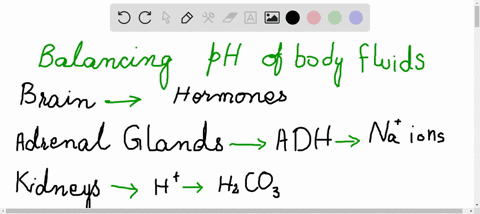 Balancing pH of body fluids
Brain → Hormones
Adrenal Glands → ADH → Na⁺ ions
Kidneys → H⁺ → H₂CO₃